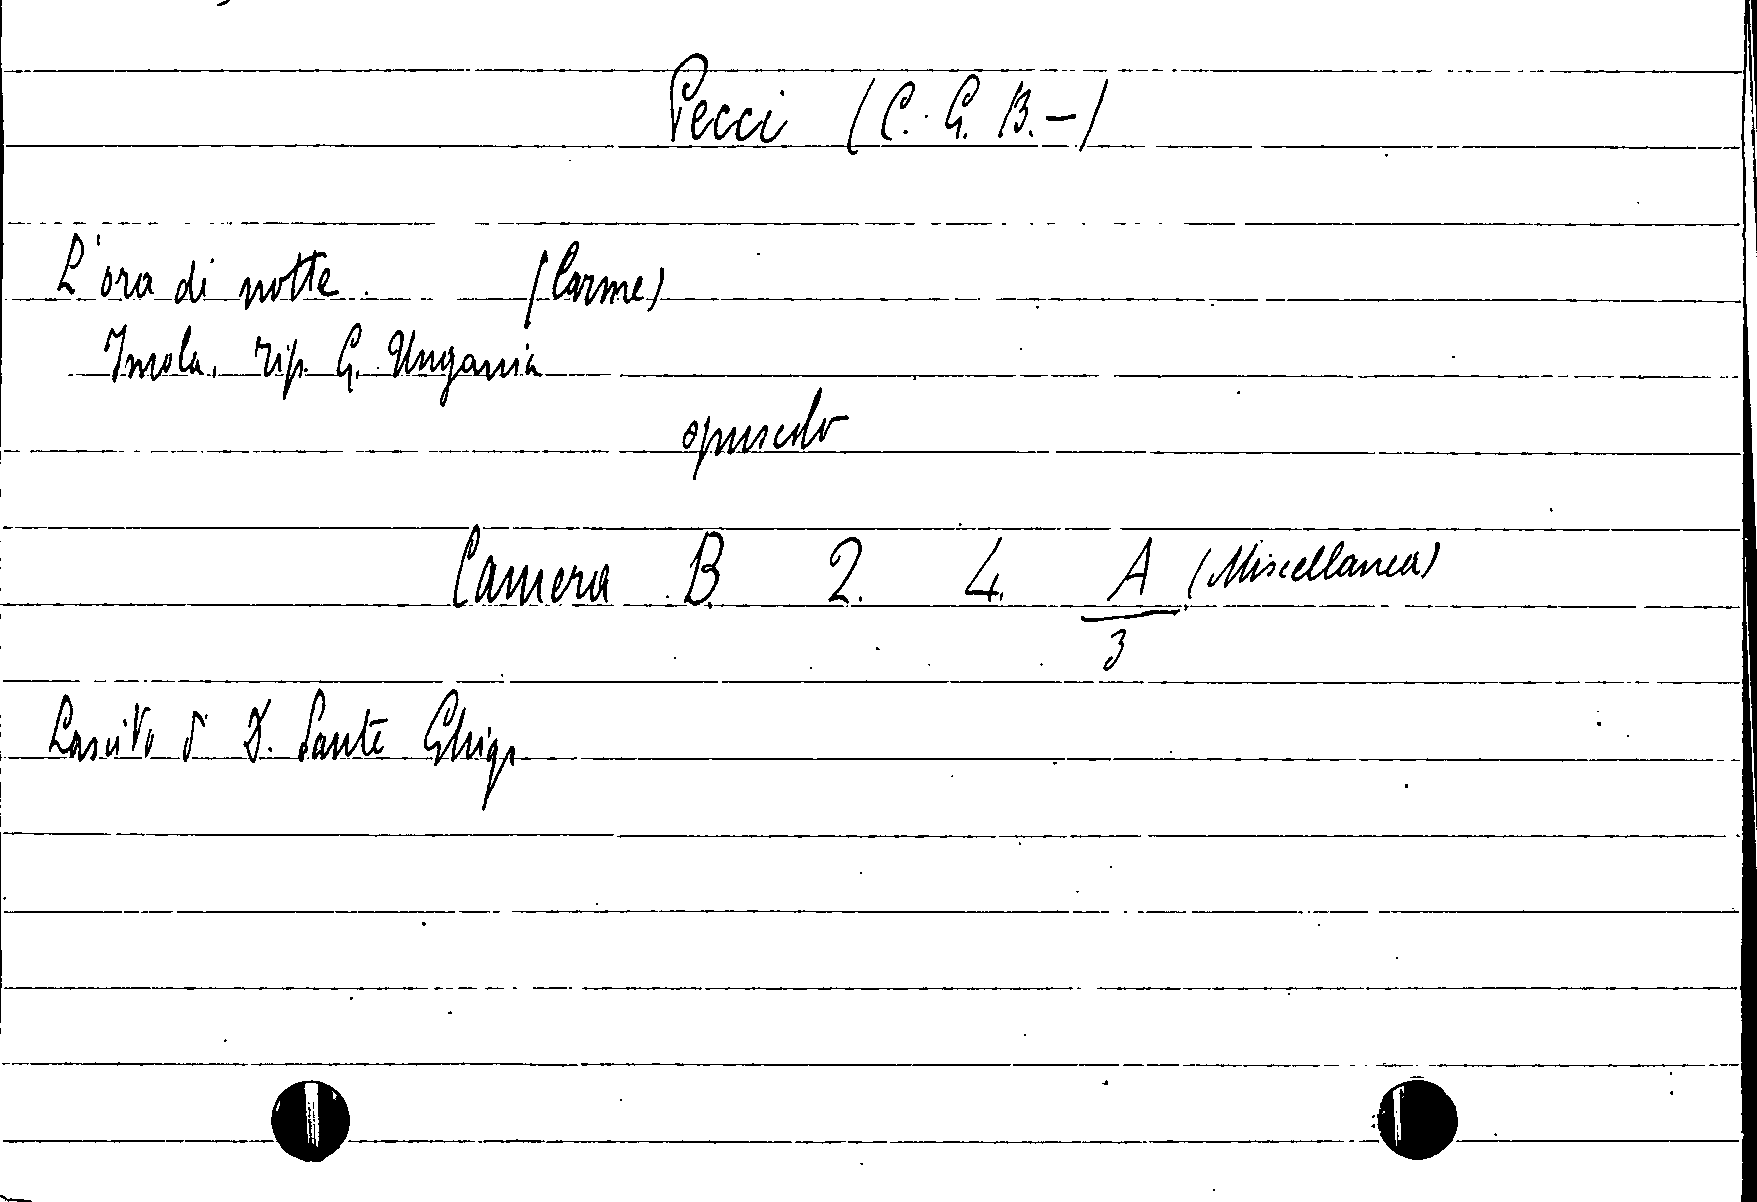 Pecci (C. G. B.-)
L'ora di notte. (Carme)
Imola, tip. G. Ungania
opuscolo
Camera B. 2. 4. A (Miscellanea)
3
Lascito di D. Sante Ghigi